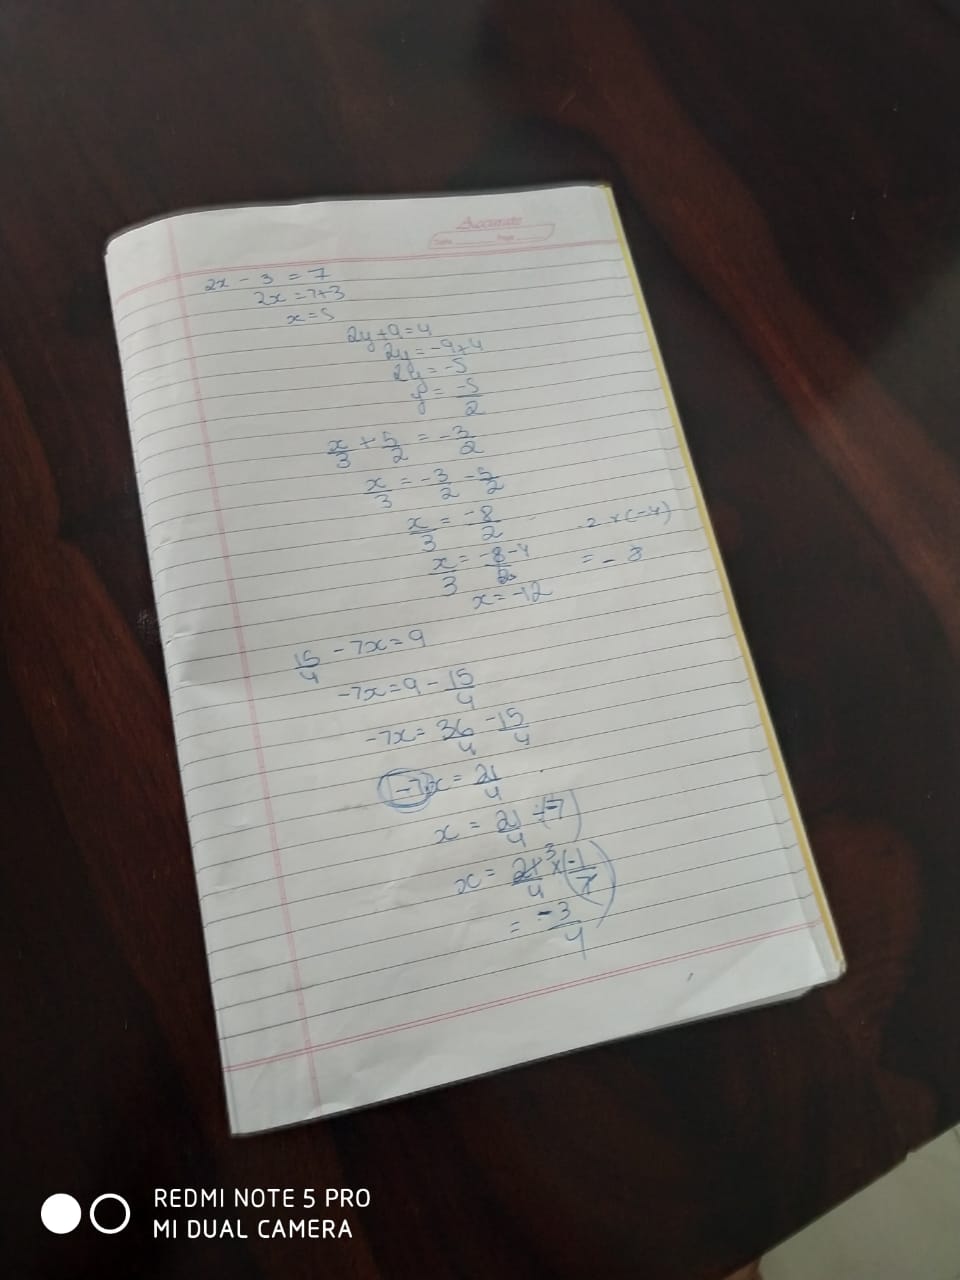 Accurate
Date Page
2x - 3 = 7
2x = 7+3
x = 5
2y + 9 = 4
2y = -9+4
2y = -5
y = -5/2
x/3 + 5/2 = -3/2
x/3 = -3/2 - 5/2
x/3 = -8/2
x/3 = -8/2 -4
x = -12
2 x (-4)
= - 8
15/4 - 7x = 9
-7x = 9 - 15/4
-7x = 36/4 - 15/4
-7x = 21/4
x = 21/4 ÷ (-7)
x = 21/4 3 x (-1/7)
= -3/4
REDMI NOTE 5 PRO
MI DUAL CAMERA